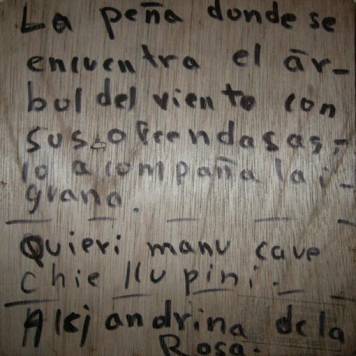 La peña donde se
encuentra el ár-
bol del viento con
sus ofrendas as-
lo acompaña la i-
guana.
Quieri manu cave
chie llu pini.
Alejandrina de la
Rosa.